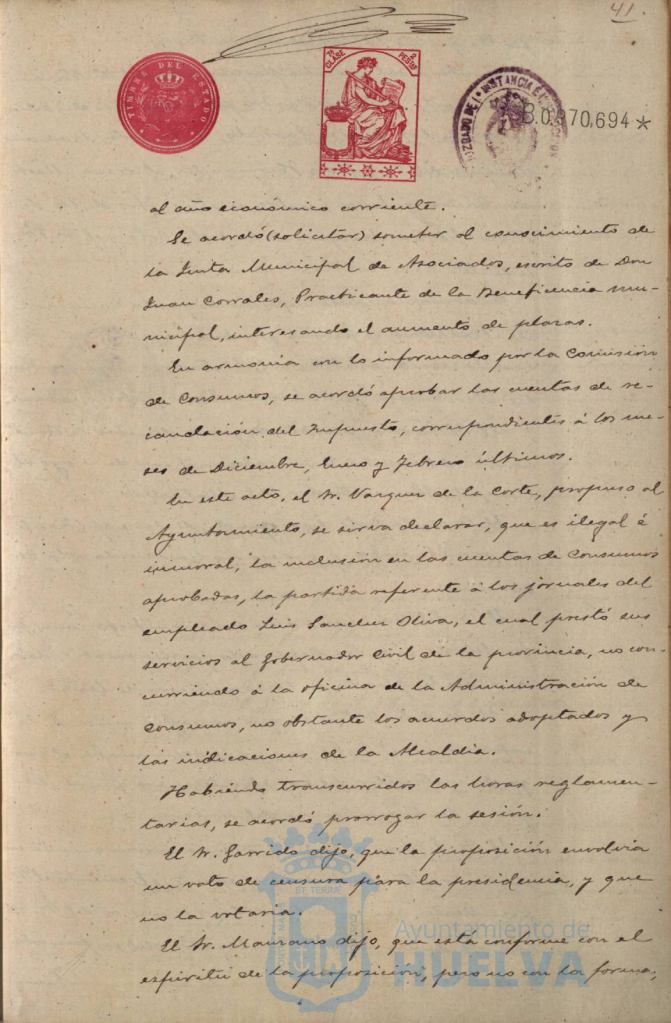 41
TIMBRE DEL ESTADO
7ª CLASE
2 PESETAS
JUZGADO DE 1ª INSTANCIA É
B.0.970,694*
al año económico corriente.
Se acordó (solicitar) someter al conocimiento de
la Junta Municipal de Asociados, escrito de Don
Juan Corrales, Practicante de la Beneficencia mu-
nicipal, interesando el aumento de plazas.
En armonia con lo informado por la Comisión
de Consumos, se acordó aprobar las cuentas de re-
caudación del Impuesto, correspondientes á los me-
ses de Diciembre, Enero y Febrero últimos.
En este acto, el Sr. Vazquez de la Corte, propuso al
Ayuntamiento, se sirva declarar, que es ilegal é
inmoral, la inclusión en las cuentas de Consumos
aprobadas, la partida referente á los jornales del
empleado Luis Sanchez Oliva, el cual prestó sus
servicios al Gobernador Civil de la provincia, no con-
curriendo á la oficina de la Administración de
Consumos, no obstante los acuerdos adoptados y
las indicaciones de la Alcaldia.
Habiendo transcurridos las horas reglamen-
tarias, se acordó prorrogar la sesión.
El Sr. Garrido dijo, que la proposición envolvia
un voto de censura para la presidencia, y que
no la votaria.
El Sr. Manzano dijo, que está conforme con el
espiritu de la proposición, pero no con la forma,
Ayuntamiento de
HUELVA